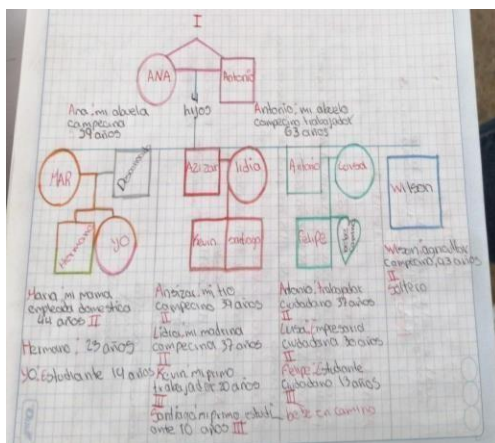 I
ANA
Antonio
Ana, mi abuela
campecina
59 años
hijos
Antonio, mi abuelo
campecino trabajador
63 años
MAR
Azizar
lidia
Antonio
Luisa
Wilson
Hermano
yo
Kevin
Santiago
Felipe
Maria, mi mama
empleada domestica
44 años II
Hermano: 23 años
yo: Estudiante 14 años
Ansizar, mi tio
campecino 39 años
II
Lidia, mi madrina
campecina 37 años
II
Kevin mi primo
trabajador 20 años
III
Santiago mi primo, estudi
ante 10 años III
Antonio, trabajador
ciudadano 37 años
II
Luisa, Empresaria
ciudadana 30 años
II
Felipe: Estudiante
ciudadano 13 años
III
bebe en camino
Wilson, agricultor
campecino, 43 años
II
Soltero